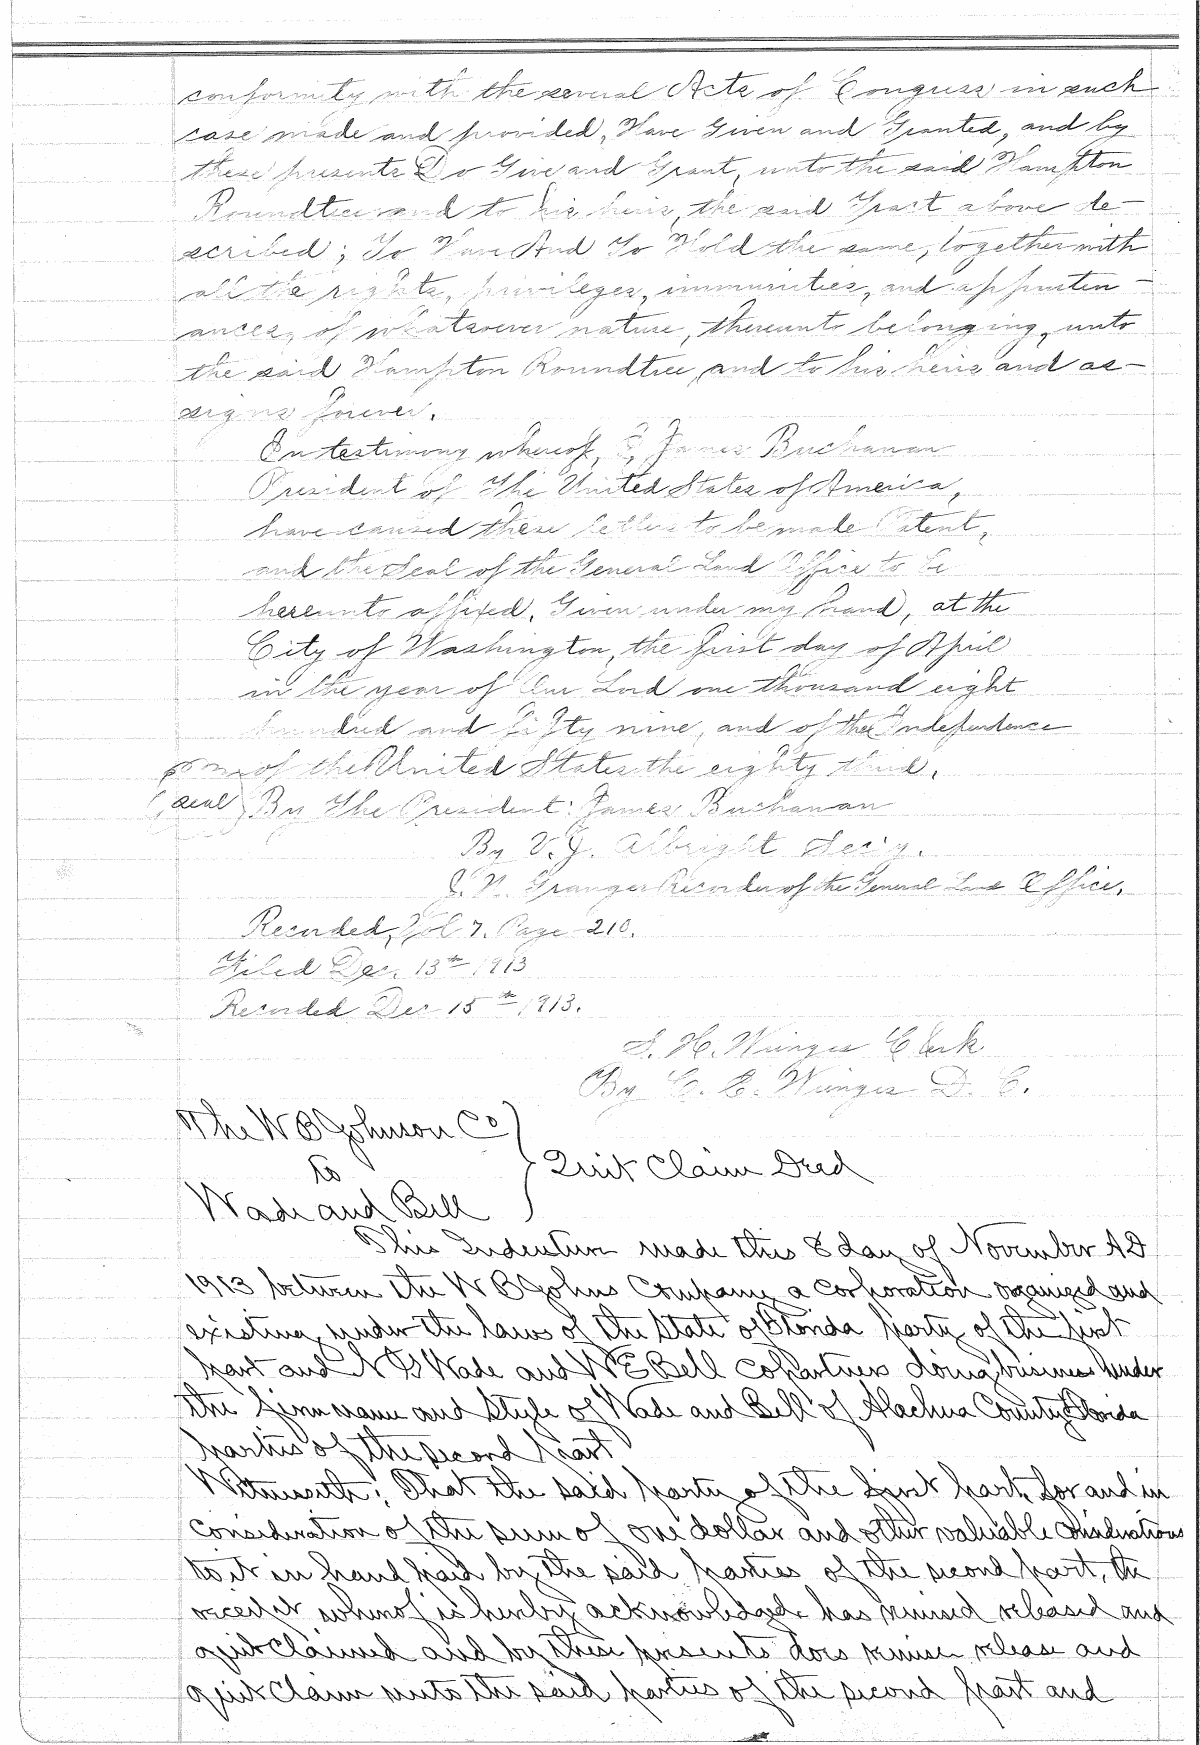 conformity with the several Acts of Congress in such
case made and provided, Have Given and Granted, and by
these presents Do Give and Grant, unto the said Hampton
Roundtree and to his heirs, the said Tract above de-
scribed; To Have And To Hold the same, together with
all the rights, privileges, immunities, and appurten-
ances, of whatsoever nature, thereunto belonging, unto
the said Hampton Roundtree, and to his heirs and as-
signs forever.
In testimony whereof, I, James Buchanan
President of The United States of America,
have caused these letters to be made Patent,
and the Seal of the General Land Office to be
hereunto affixed. Given under my hand, at the
City of Washington, the first day of April
in the year of Our Lord one thousand eight
hundred and fifty nine, and of the Independence
of the United States the eighty third.
Seal By The President: James Buchanan
By V. J. Albright Sec'y.
J. N. Granger Recorder of the General Land Office.
Recorded, Vol 7. Page 210.
Filed Dec. 13th 1913
Recorded Dec 15th 1913.
S. H. Wienges Clerk
By C. E. Wienges D. C.
The W B Johnson Co
to Quit Claim Deed
Wade and Bell
This Indenture made this 8 day of November AD
1913 between the W B Johns Company a corporation organized and
existing under the laws of the State of Florida party of the first
part and N G Wade and W E Bell copartners doing business under
the firm name and Style of Wade and Bell of Alachua County Florida
parties of the second part
Witnesseth; That the said party of the first part, for and in
consideration of the sum of one dollar and other valuable considerations
to it in hand paid by the said parties of the second part, the
receipt whereof is hereby acknowledged, has remised released and
quit claimed and by these presents does remise release and
quit claim unto the said parties of the second part and